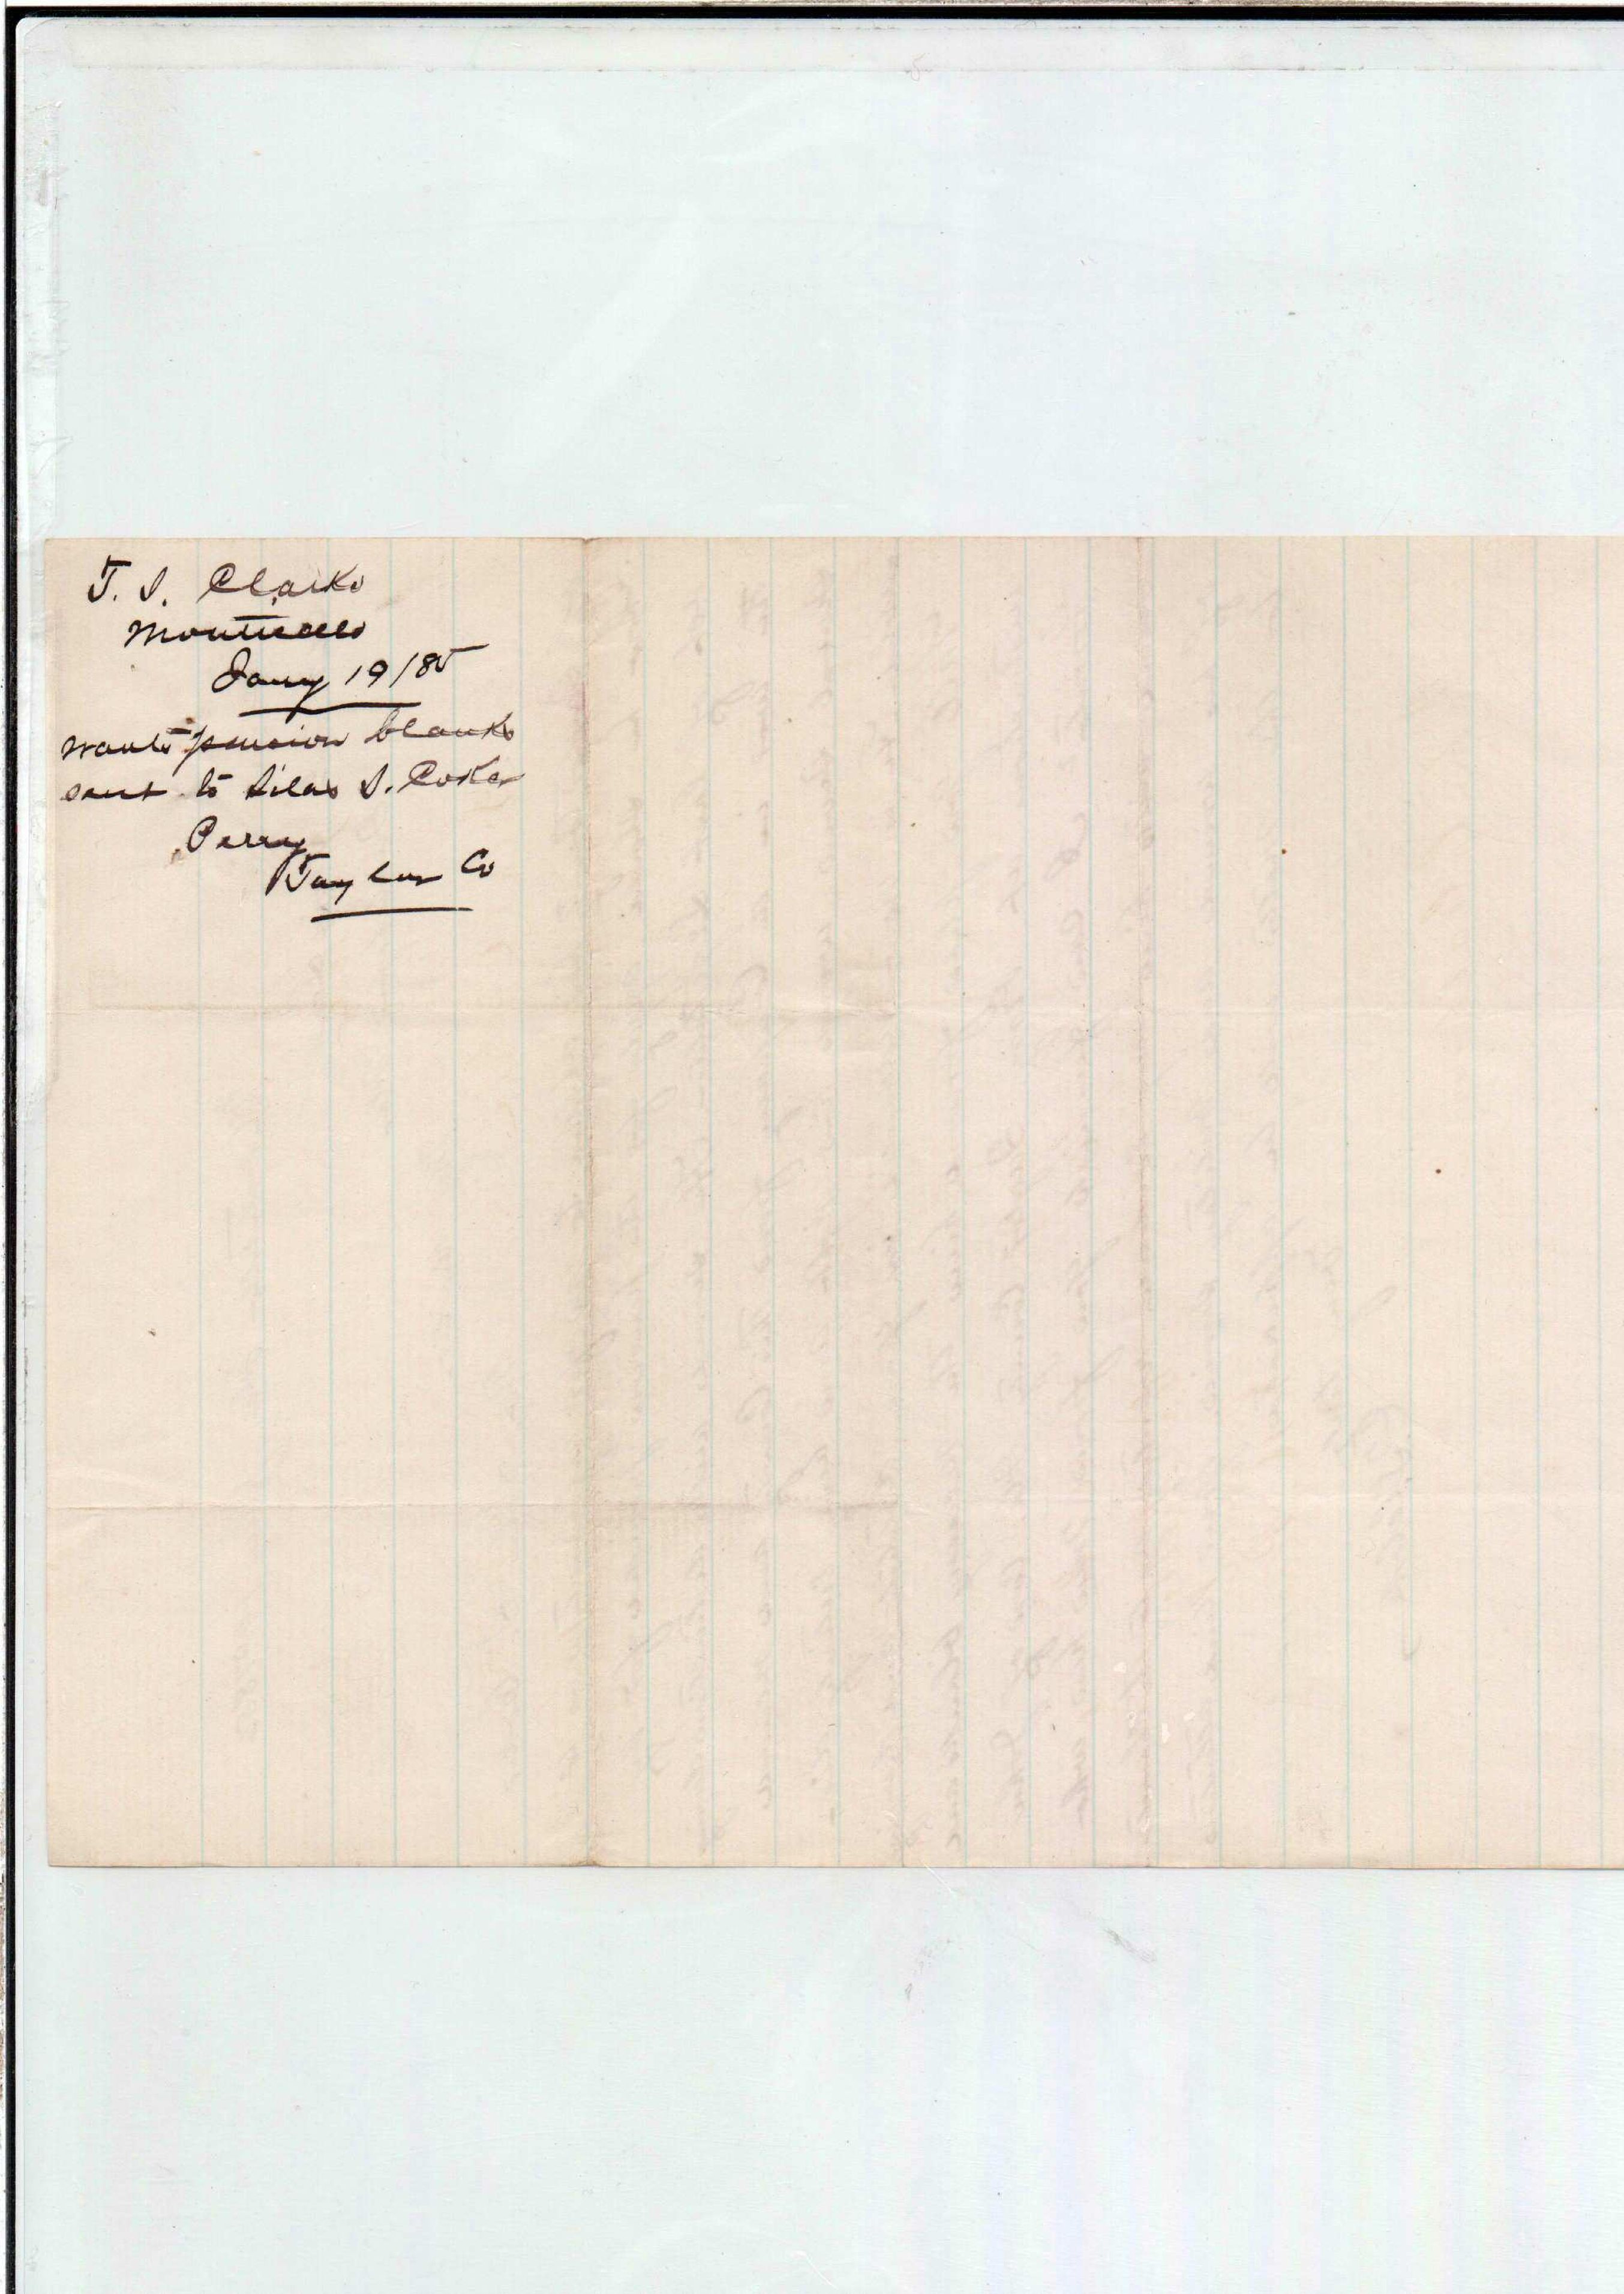 T. S. Clarke
Monticello
Jany 19/85
wants pension blanks
sent to Silas S. Coker
Perry
Taylor Co